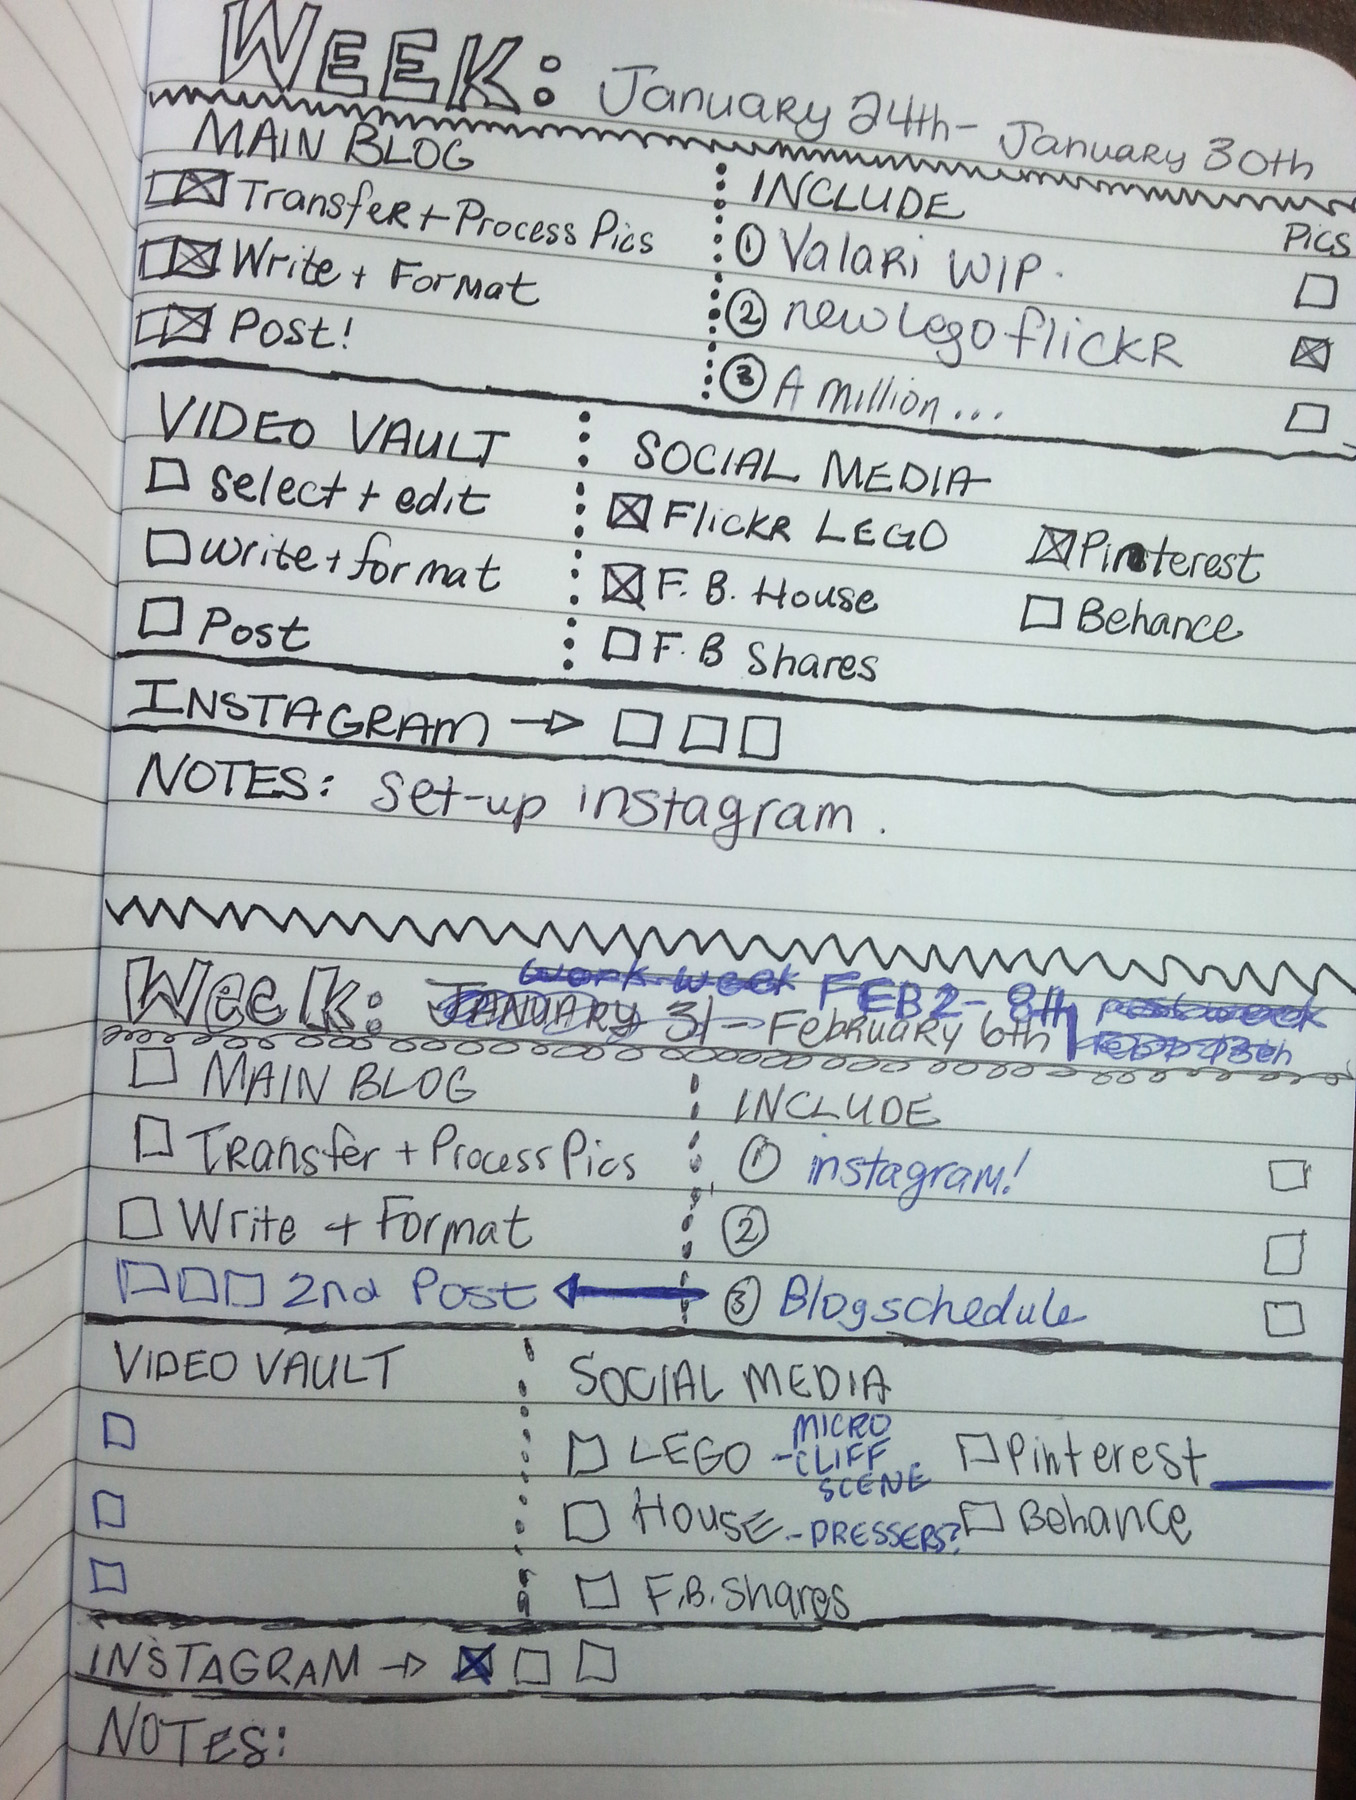 WEEK: January 24th - January 30th
MAIN BLOG
Transfer + Process Pics
Write + Format
Post!
INCLUDE
Pics
① Valari WIP.
② new Lego flickr
③ A million...
VIDEO VAULT
Select + edit
write + format
Post
SOCIAL MEDIA
Flickr LEGO
Pinterest
F.B. House
Behance
F.B Shares
INSTAGRAM →
NOTES: Set-up instagram.
work week FEB 2 - 8th
Week: JANUARY 31 - February 6th
MAIN BLOG
Transfer + Process Pics
Write + Format
2nd Post
INCLUDE
① instagram!
②
③ Blog schedule
VIDEO VAULT
SOCIAL MEDIA
LEGO - MICRO
CLIFF
SCENE
Pinterest
House - DRESSERS?
Behance
F.B. Shares
INSTAGRAM →
NOTES: